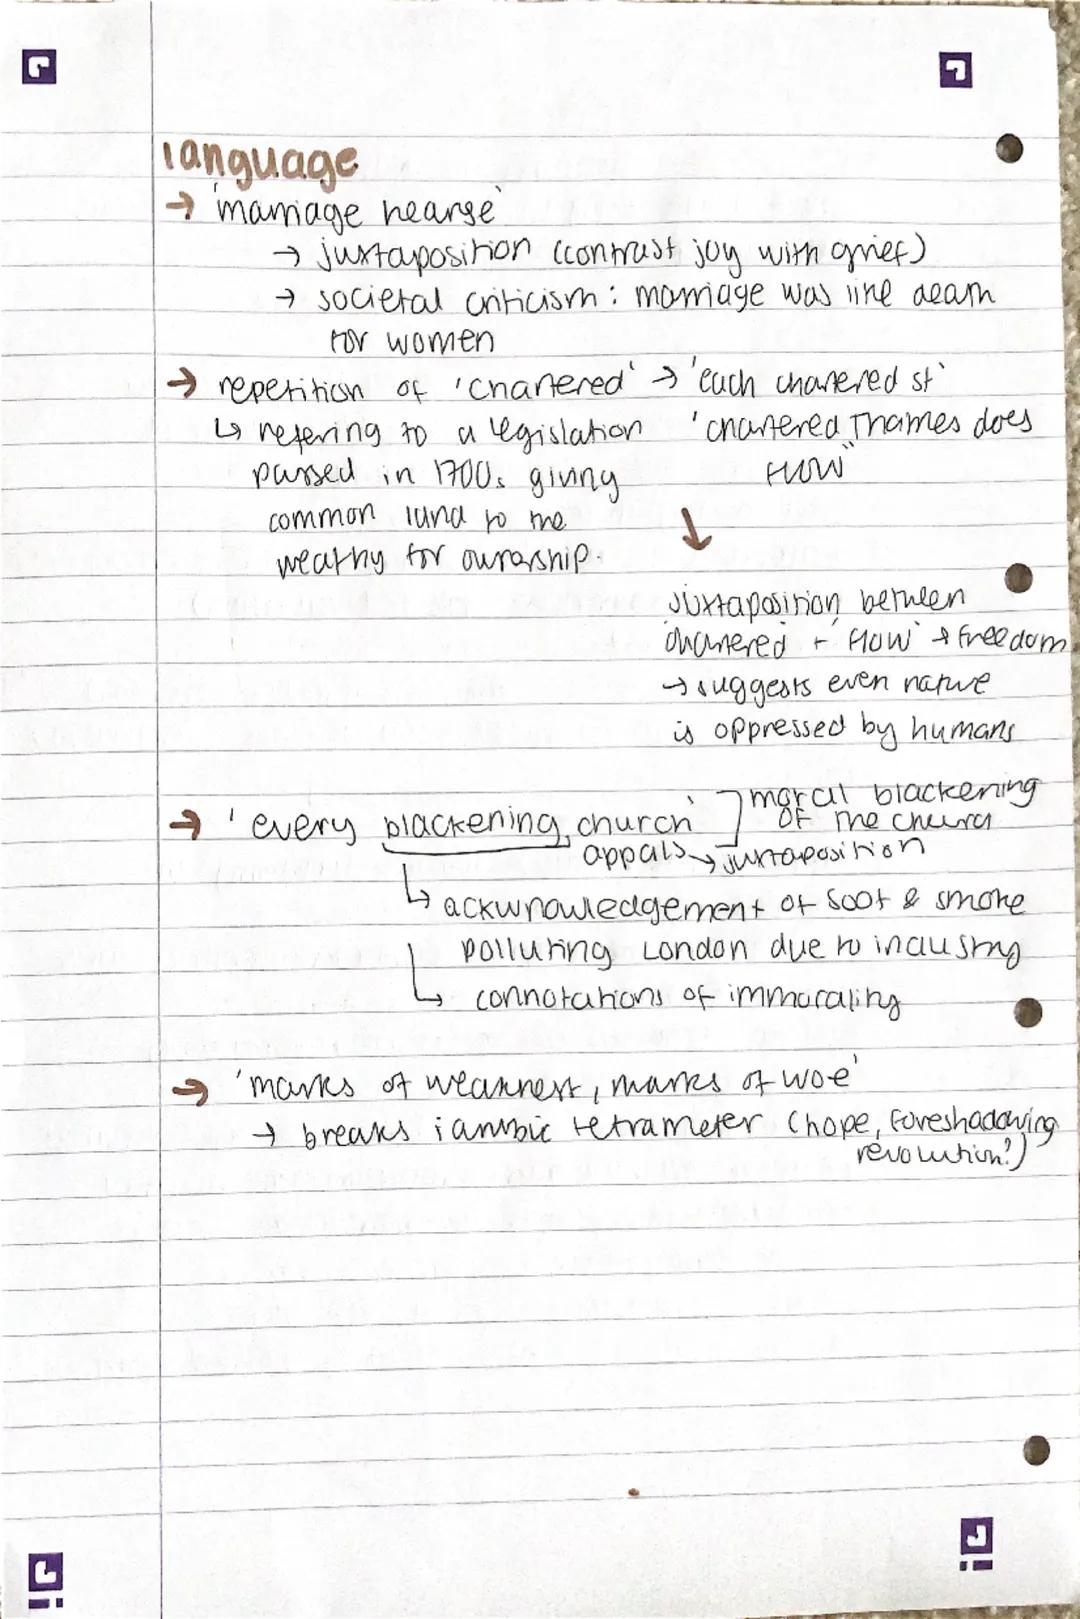 language
→ 'marriage hearse'
→ juxtaposition (contrast joy with grief)
→ societal criticism: marriage was like death
for women
→ repetition of 'chartered' → 'each chartered st'
↳ refering to a legislation
passed in 1700s giving
common land to the
weathy for ownership.
'chartered Thames does
flow"
↓
juxtaposition between
chartered + 'flow' → freedom
→ suggests even nature
is oppressed by humans
→ 'every blackening church'
appals → juxtaposition
moral blackening
of the church
↳ acknowledgement of soot & smoke
polluting London due to industry
↳ connotations of immorality
→ 'marks of weakness, marks of woe'
→ breaks iambic tetrameter (hope, foreshadowing
revolution?)